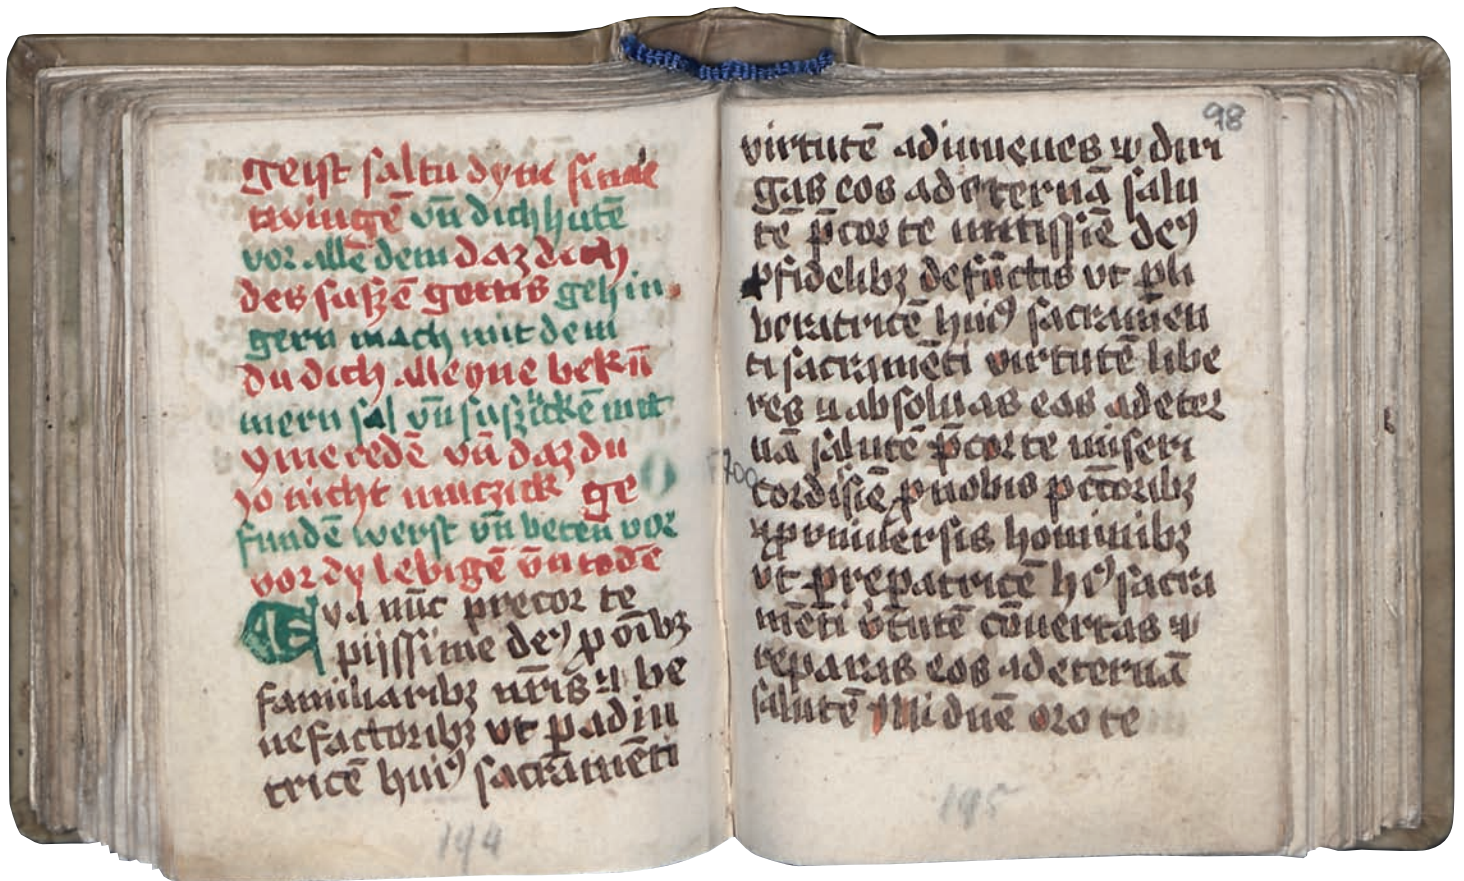 geist saltu dyne sinne
twingē vn̄ dich hutē
vor allē dem daz dich
des sußē gottis gehin
gern mach mit dem
du dich alleyne bekū
mern sal vn̄ mit
yme redē vn̄ daz du
yo nicht ge
fundē werst vn̄ beten vor
vor dy lebigē vn̄ todē
ya nūc precor te
pijssime deꝰ ꝓ oībꝫ
familiaribꝫ nr̄is ⁊ be
nefactoribꝫ vt ꝑ adiu
tricē huiꝰ sacramēti
98
virtutē adiuueues ⁊ diri
gas eos ad eternā salu
tē p̄cor te mitissīe deꝰ
ꝓ fidelibꝫ defūctis vt ꝑ li
beratricē huiꝰ sacramen
ti sacramēti virtutē libe
res ⁊ absoluas eos ad eter
nā salutē p̄cor te miseri
cordisīe ꝓ nobis pctōribꝫ
⁊ ꝓ vniuersis hominibꝫ
vt ꝑ repatricē hꝰ sacra
mēti v̄tutē cōuertas ⁊
reparas eos ad eternā
salutē Mi dne oro te
194
195